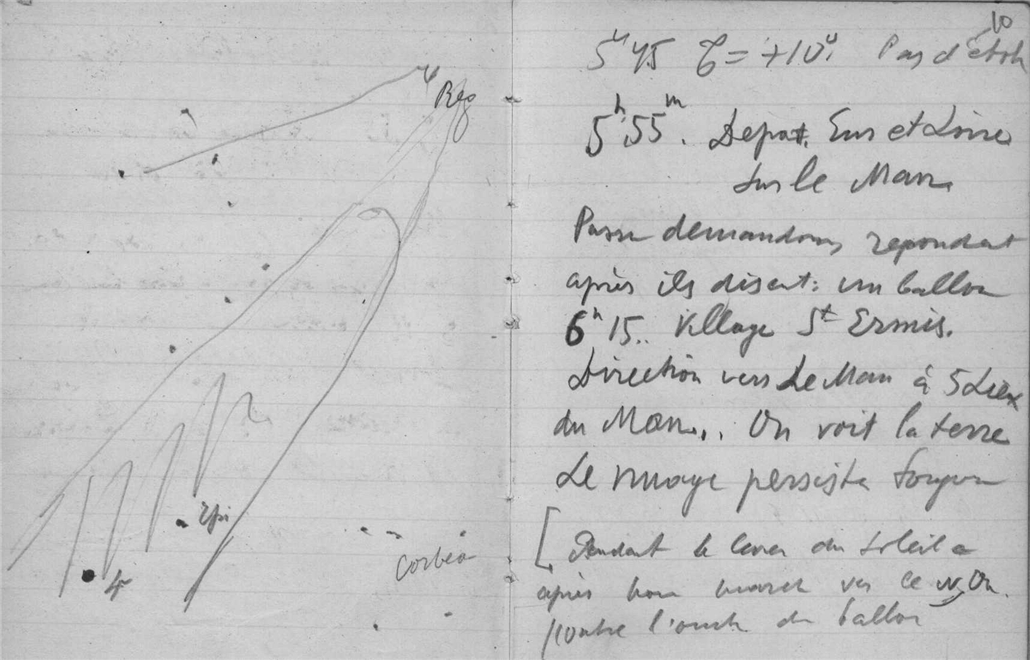 Reg
Epi
Corbeau
10
5h45 τ = +10°. Pas d'étoile
5h55m. Depart. Eur et Loire
sur le Mans
Passu demandons, repondent
après ils disent: un ballon
6h15.. Village St Ermis.
Direction vers Le Mans à 5 Lieux
du Mans.. On voit la terre
Le nuage persiste toujours
[Pendant le lever du soleil
après
contre l'ombre du ballon